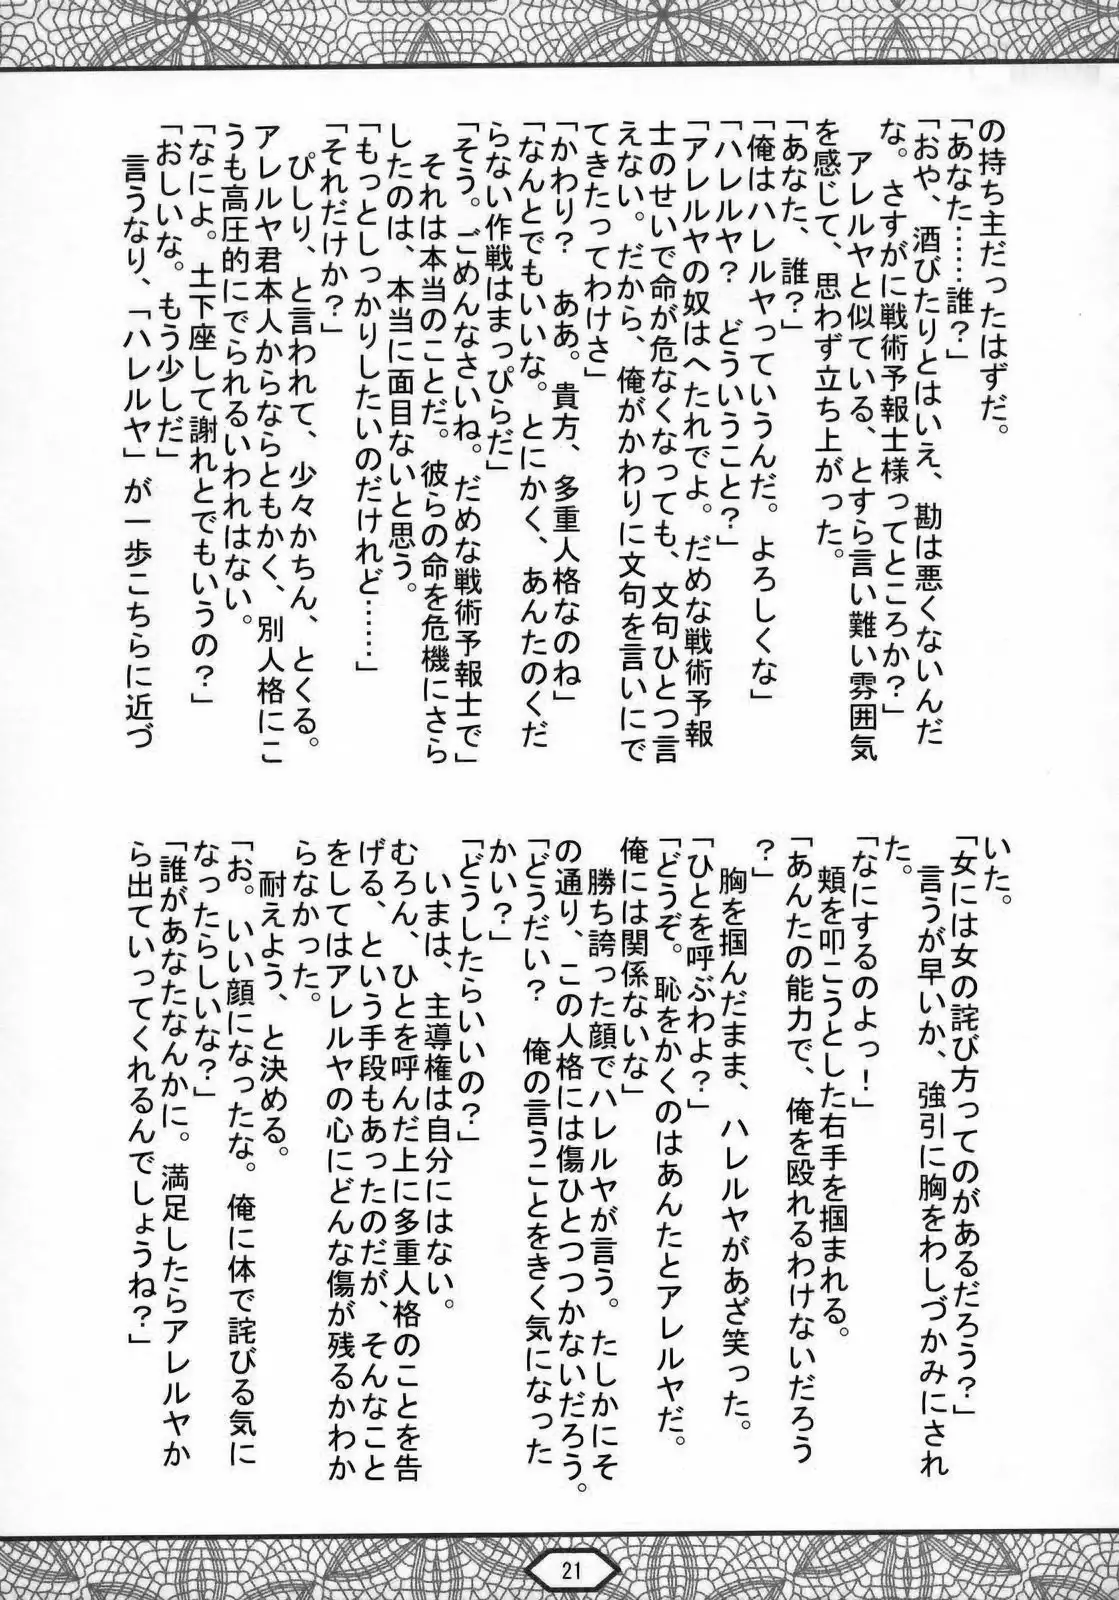 の持ち主だったはずだ。
「あなた……誰？」
「おや、酒びたりとはいえ、勘は悪くないんだ
な。さすがに戦術予報士様ってところか？」
アレルヤと似ている、とすら言い難い雰囲気
を感じて、思わず立ち上がった。
「あなた、誰？」
「俺はハレルヤっていうんだ。よろしくな」
「ハレルヤ？　どういうこと？」
「アレルヤの奴はへたれでよ。だめな戦術予報
士のせいで命が危なくなっても、文句ひとつ言
えない。だから、俺がかわりに文句を言いにで
てきたってわけさ」
「かわり？　ああ。貴方、多重人格なのね」
「なんとでもいいな。とにかく、あんたのくだ
らない作戦はまっぴらだ」
「そう。ごめんなさいね。だめな戦術予報士で」
それは本当のことだ。彼らの命を危機にさら
したのは、本当に面目ないと思う。
「もっとしっかりしたいのだけれど……」
「それだけか？」
ぴしり、と言われて、少々かちん、とくる。
アレルヤ君本人からならともかく、別人格にこ
うも高圧的にでられるいわれはない。
「なによ。土下座して謝れとでもいうの？」
「おしいな。もう少しだ」
言うなり、「ハレルヤ」が一歩こちらに近づ
いた。
「女には女の詫び方ってのがあるだろう？」
言うが早いか、強引に胸をわしづかみにされ
た。
「なにするのよっ！」
頬を叩こうとした右手を掴まれる。
「あんたの能力で、俺を殴れるわけないだろう
？」
胸を掴んだまま、ハレルヤがあざ笑った。
「ひとを呼ぶわよ？」
「どうぞ。恥をかくのはあんたとアレルヤだ。
俺には関係ないな」
勝ち誇った顔でハレルヤが言う。たしかにそ
の通り、この人格には傷ひとつつかないだろう。
「どうだい？　俺の言うことをきく気になった
かい？」
「どうしたらいいの？」
いまは、主導権は自分にはない。
むろん、ひとを呼んだ上に多重人格のことを告
げる、という手段もあったのだが、そんなこと
をしてはアレルヤの心にどんな傷が残るかわか
らなかった。
耐えよう、と決める。
「お。いい顔になったな。俺に体で詫びる気に
なったらしいな？」
「誰があなたなんかに。満足したらアレルヤか
ら出ていってくれるんでしょうね？」
21